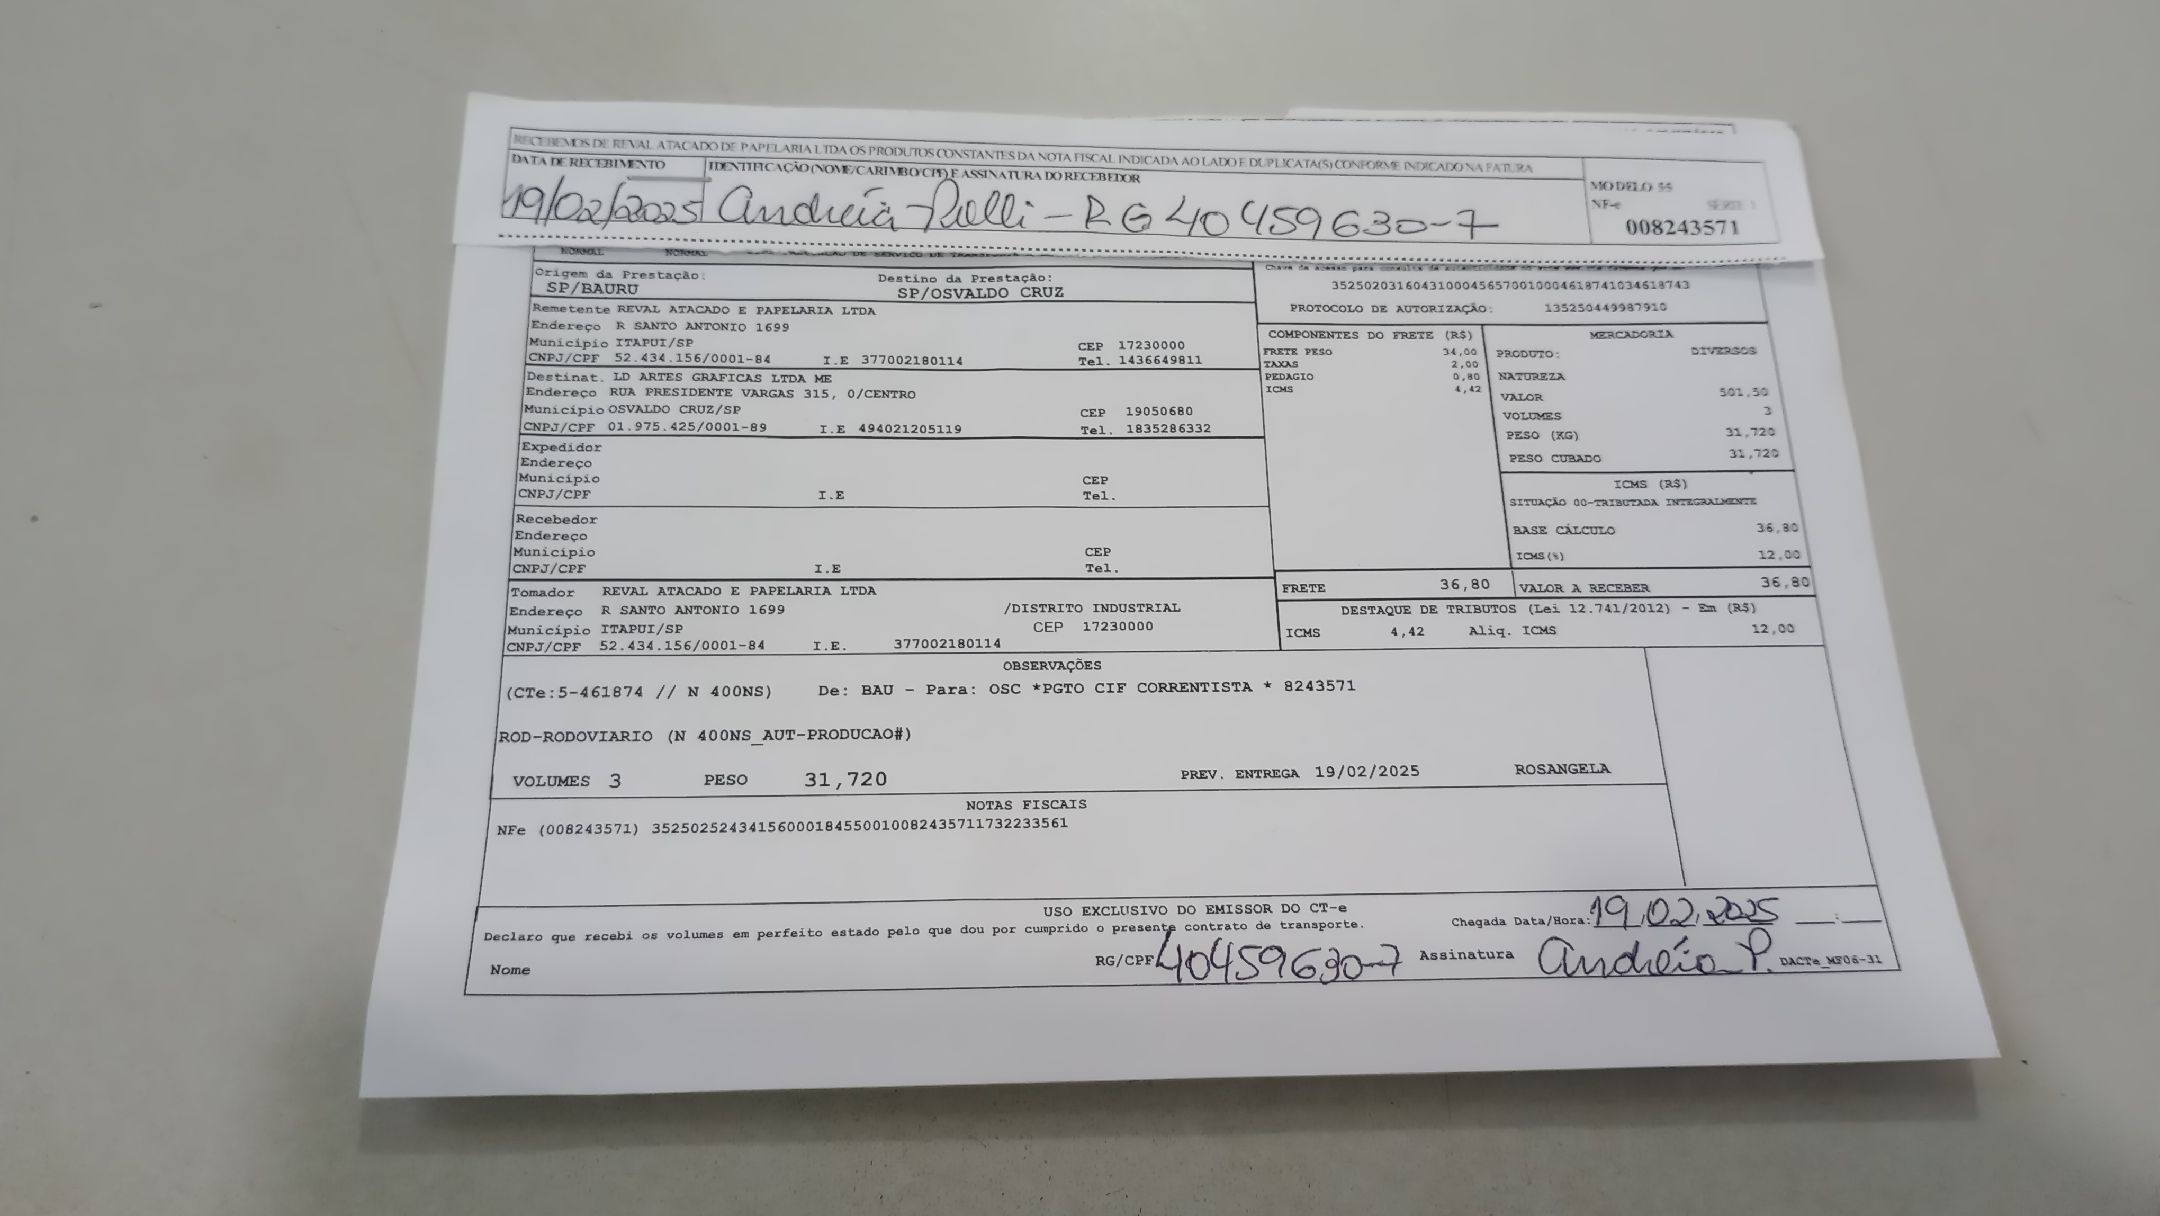 RECEBEMOS DE REVAL ATACADO DE PAPELARIA LTDA OS PRODUTOS CONSTANTES DA NOTA FISCAL INDICADA AO LADO E DUPLICATA(S) CONFORME INDICADO NA FATURA
DATA DE RECEBIMENTO IDENTIFICAÇÃO (NOME/CARIMBO/CPF) E ASSINATURA DO RECEBEDOR
MODELO 55
NF-e SÉRIE 1
19/02/2025 Andréia - RG 40459630-7
008243571
NORMAL NORMAL
Origem da Prestação: Destino da Prestação:
SP/BAURU SP/OSVALDO CRUZ
35250203160431000456570010004618741034618743
PROTOCOLO DE AUTORIZAÇÃO: 135250449987910
Remetente REVAL ATACADO E PAPELARIA LTDA
Endereço R SANTO ANTONIO 1699
Município ITAPUI/SP CEP 17230000
CNPJ/CPF 52.434.156/0001-84 I.E 377002180114 Tel. 1436649811
Destinat. LD ARTES GRAFICAS LTDA ME
Endereço RUA PRESIDENTE VARGAS 315, 0/CENTRO
Município OSVALDO CRUZ/SP CEP 19050680
CNPJ/CPF 01.975.425/0001-89 I.E 494021205119 Tel. 1835286332
Expedidor
Endereço
Município CEP
CNPJ/CPF I.E Tel.
Recebedor
Endereço
Município CEP
CNPJ/CPF I.E Tel.
Tomador REVAL ATACADO E PAPELARIA LTDA
Endereço R SANTO ANTONIO 1699 /DISTRITO INDUSTRIAL
Município ITAPUI/SP CEP 17230000
CNPJ/CPF 52.434.156/0001-84 I.E. 377002180114
COMPONENTES DO FRETE (R$)
FRETE PESO 34,00
TAXAS 2,00
PEDAGIO 0,80
ICMS 4,42
MERCADORIA
PRODUTO: DIVERSOS
NATUREZA
VALOR 501,50
VOLUMES 3
PESO (KG) 31,720
PESO CUBADO 31,720
ICMS (R$)
SITUAÇÃO 00-TRIBUTADA INTEGRALMENTE
BASE CÁLCULO 36,80
ICMS(%) 12,00
FRETE 36,80 VALOR A RECEBER 36,80
DESTAQUE DE TRIBUTOS (Lei 12.741/2012) - Em (R$)
ICMS 4,42 Aliq. ICMS 12,00
OBSERVAÇÕES
(CTe:5-461874 // N 400NS) De: BAU - Para: OSC *PGTO CIF CORRENTISTA * 8243571
ROD-RODOVIARIO (N 400NS_AUT-PRODUCAO#)
VOLUMES 3 PESO 31,720 PREV. ENTREGA 19/02/2025 ROSANGELA
NOTAS FISCAIS
NFe (008243571) 35250252434156000184550010082435711732233561
USO EXCLUSIVO DO EMISSOR DO CT-e
Chegada Data/Hora: 19.02.2025 __:__
Declaro que recebi os volumes em perfeito estado pelo que dou por cumprido o presente contrato de transporte.
Nome RG/CPF 40459630-7 Assinatura Andréia P. DACTe_MF06-31